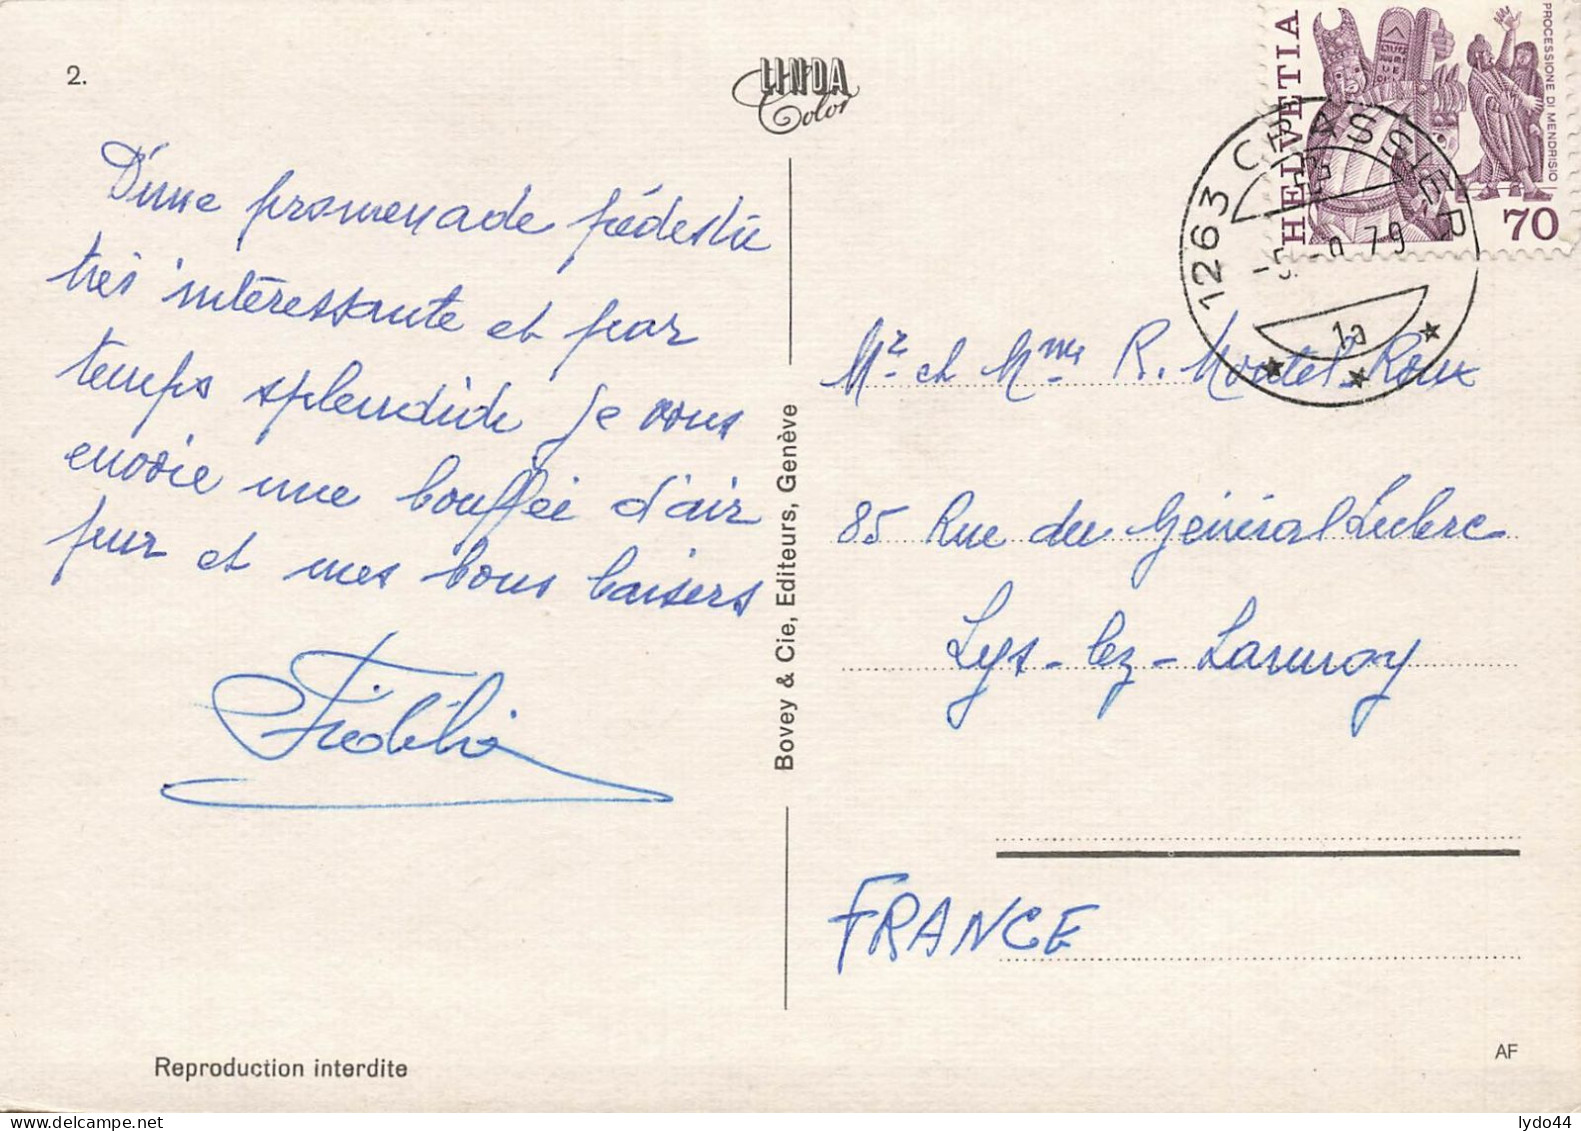 2.
LINDA
Color
D'une promenade pédestre
très intéressante et par
temps splendide je vous
envoie une bouffée d'air
pur et mes bons baisers
Bovey & Cie, Editeurs, Genève
Reproduction interdite
HELVETIA
PROCESSIONE DI MENDRISIO
70
1263 CRASSIER
79
1a
Mr et Mme R. Montel-Roux
85 Rue du Général Leclerc
Lys-lez-Lannoy
FRANCE
AF
lydo44